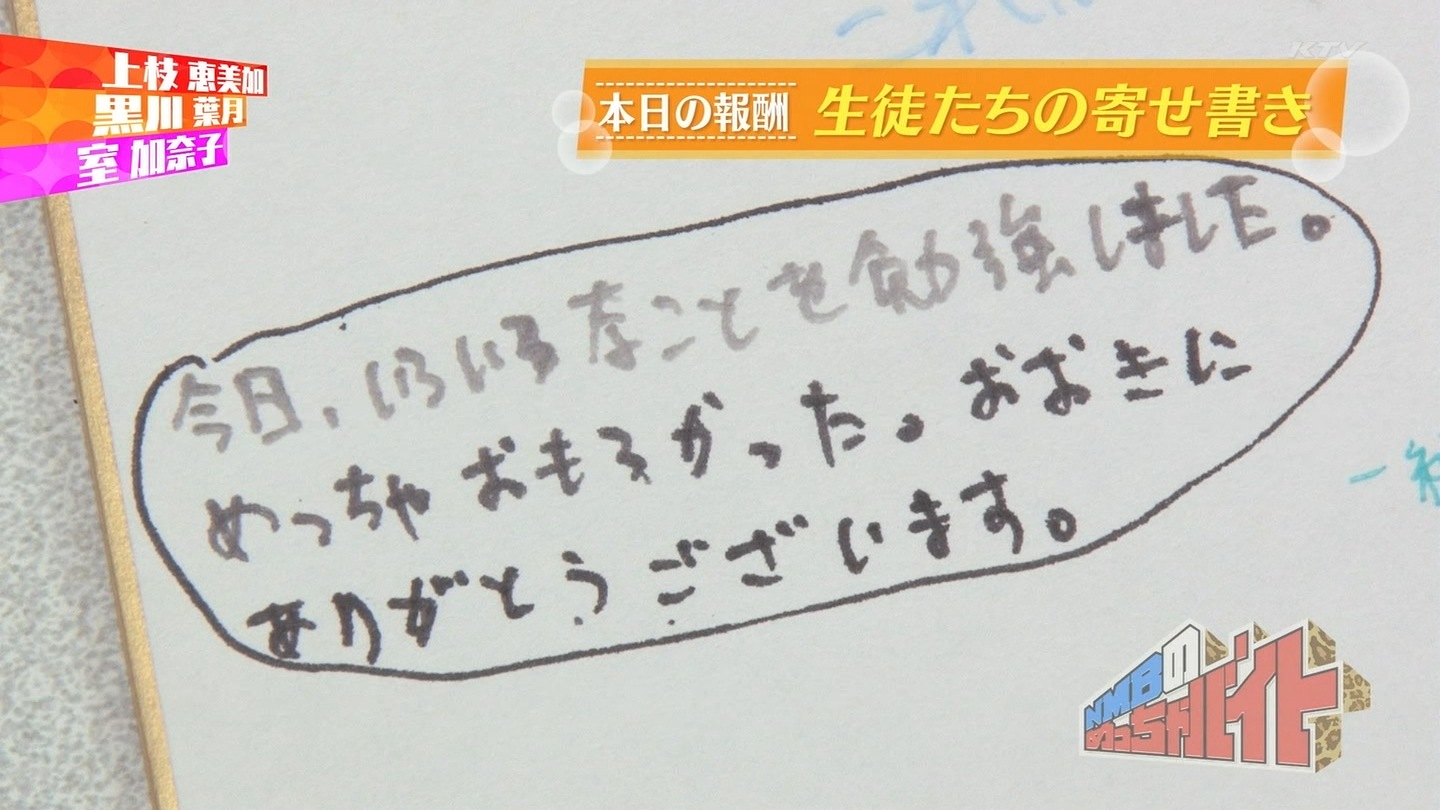 KTV
上枝 恵美加
黒川 葉月
室 加奈子
本日の報酬 生徒たちの寄せ書き
今日、いろいろなことを勉強しました。
めっちゃおもろかった。おおきに
ありがとうございます。
NMBの
めっちゃバイト